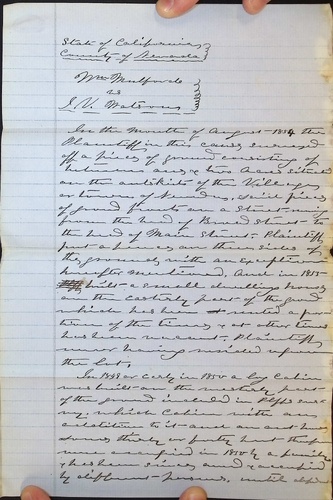 State of California
County of Nevada
Wm Mulford
vs
J. V.
In the month of August 1854 the
Plaintiff in this cause enclosed
off a piece of ground consisting of
between one & two Acres situate
on the outskirts of the Village
or town of Nevada, said piece
of ground fronts on a Street
from the head of Broad Street to
the head of Main Street. Plaintiff
put a fence on three sides of
the ground with an exception
hereafter mentioned, And in 1855
built a small dwelling house
on the Easterly part of the ground
which has been rented a portion
of the time & at other times
has been vacant. Plaintiff
never having resided upon
the lot.
In 1849 or early in 1850 a log Cabin
was built on the westerly part
of the ground included in Plffs
which Cabin with an
addition to it
thirty or forty feet
was occupied in 1850 by a family
& has been since and occupied
by different persons, until